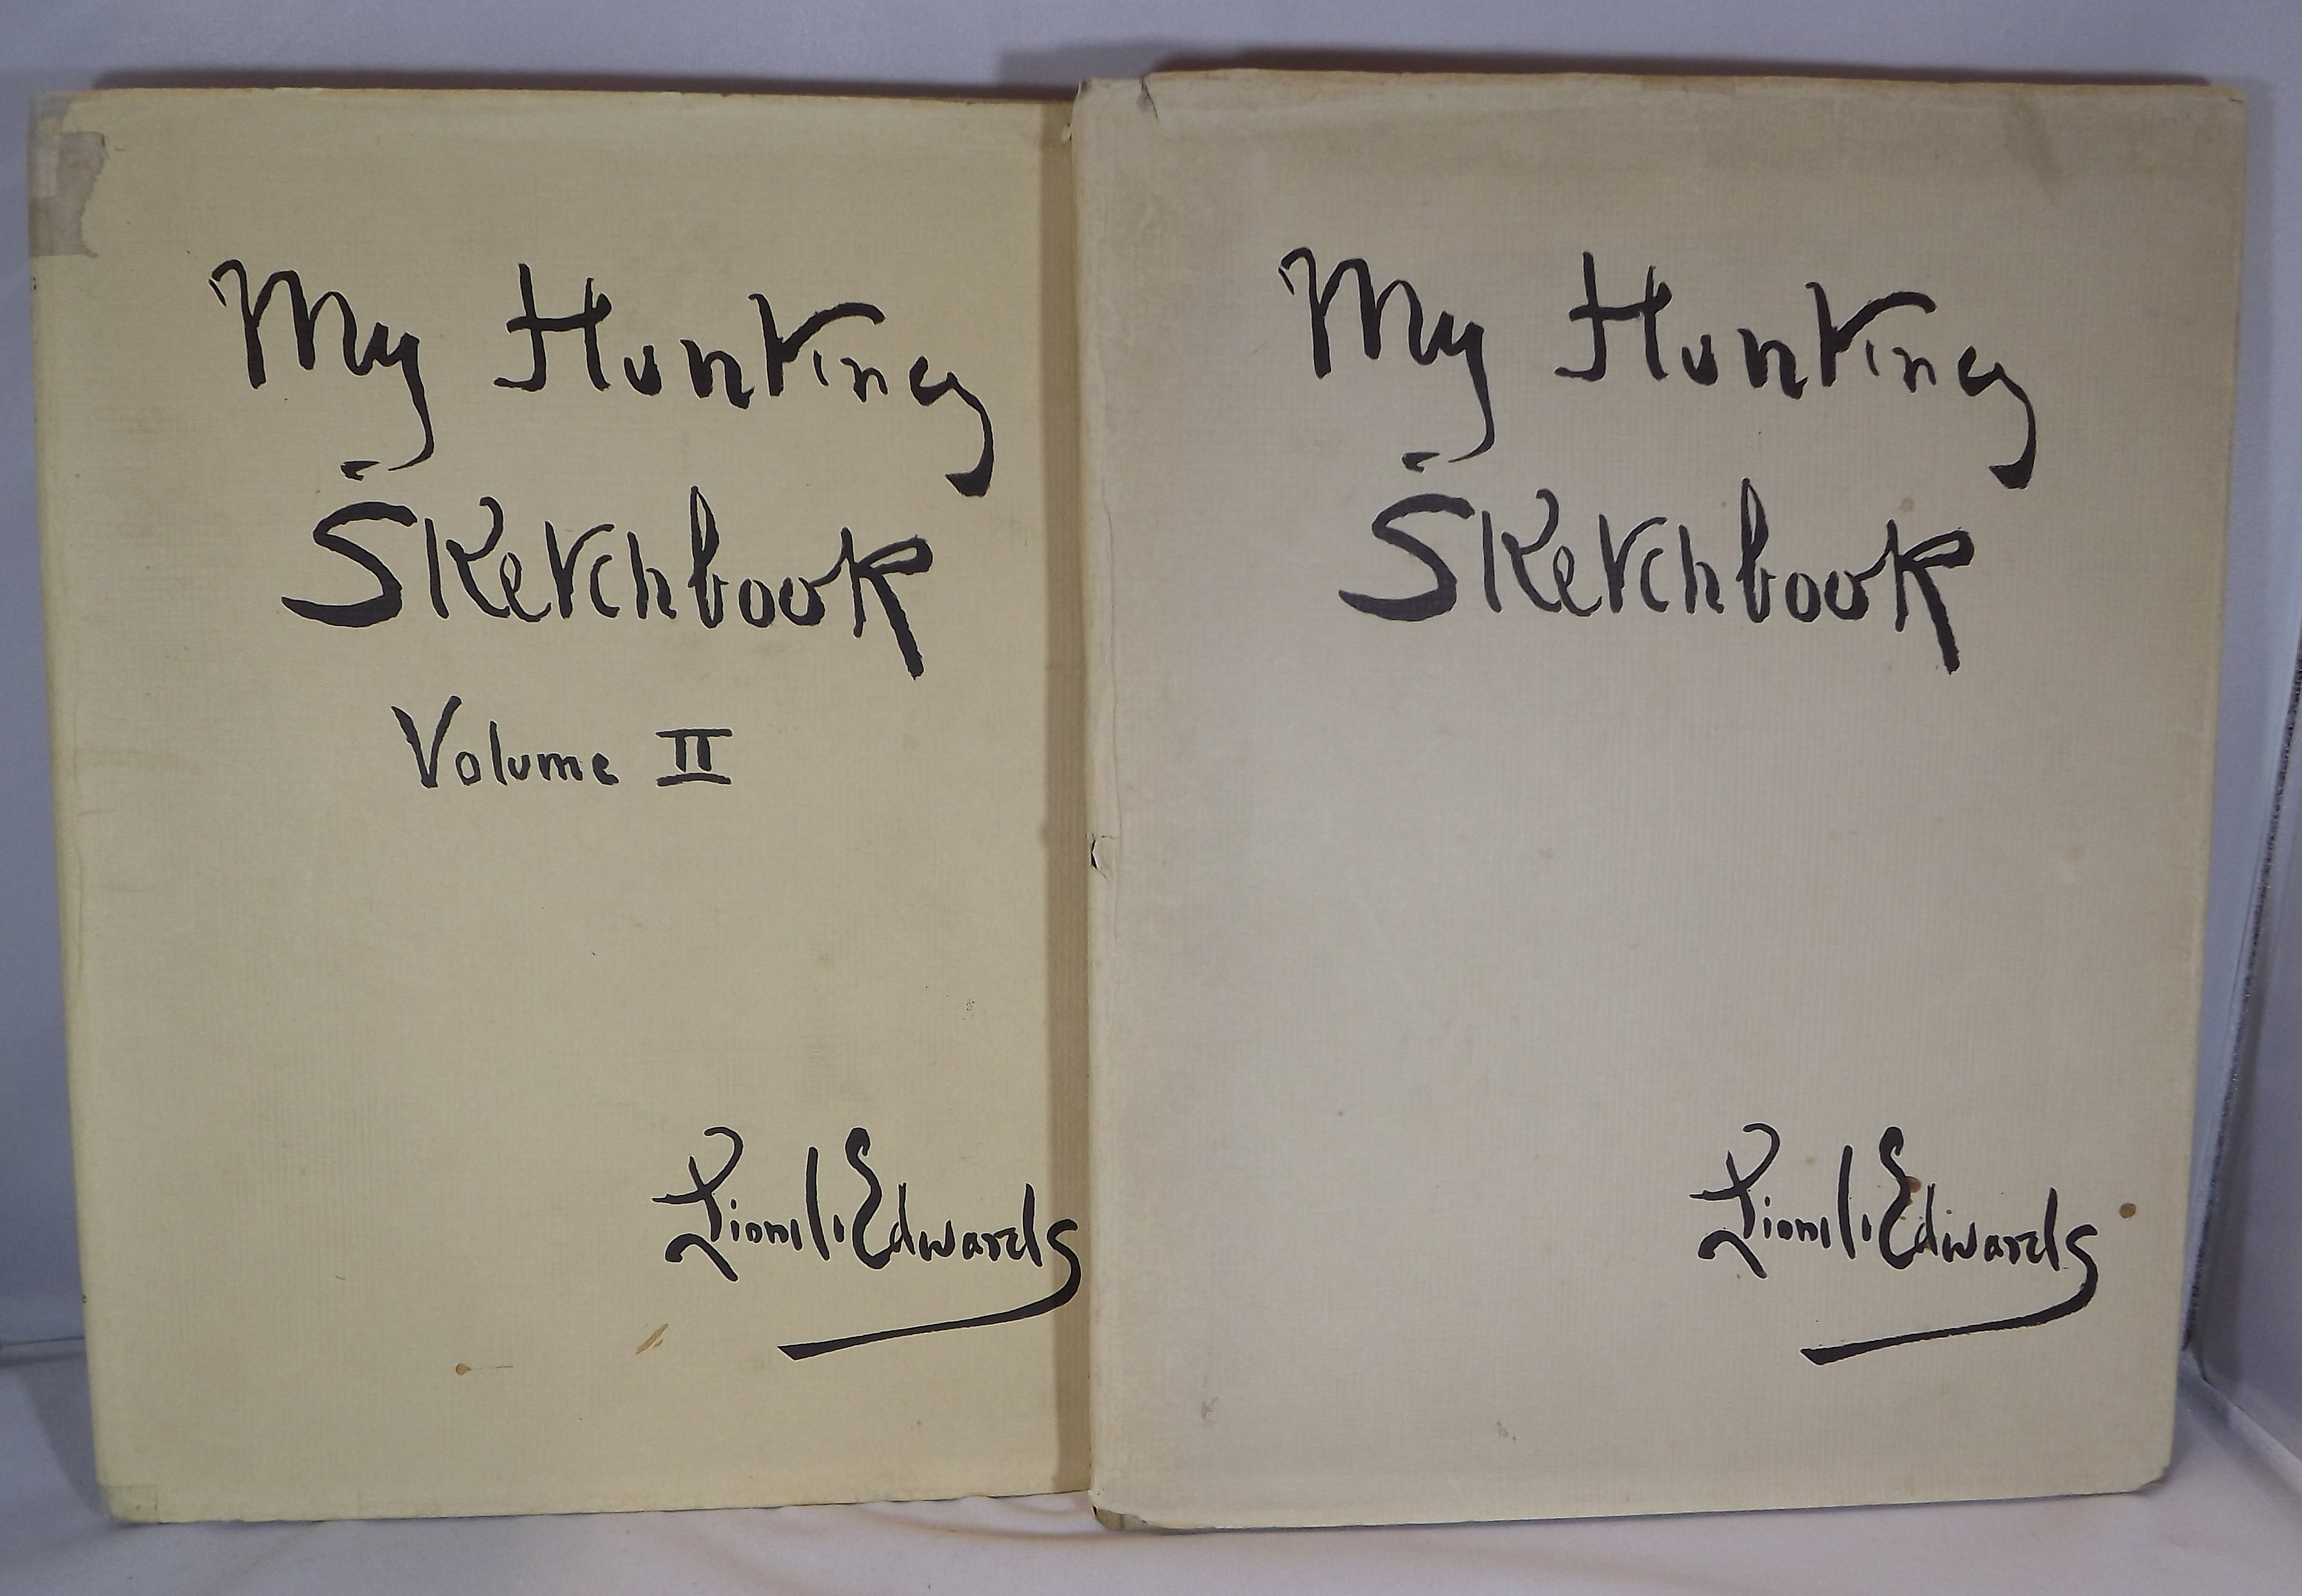 My Hunting
Sketchbook
Volume II
Lionel Edwards
My Hunting
Sketchbook
Lionel Edwards